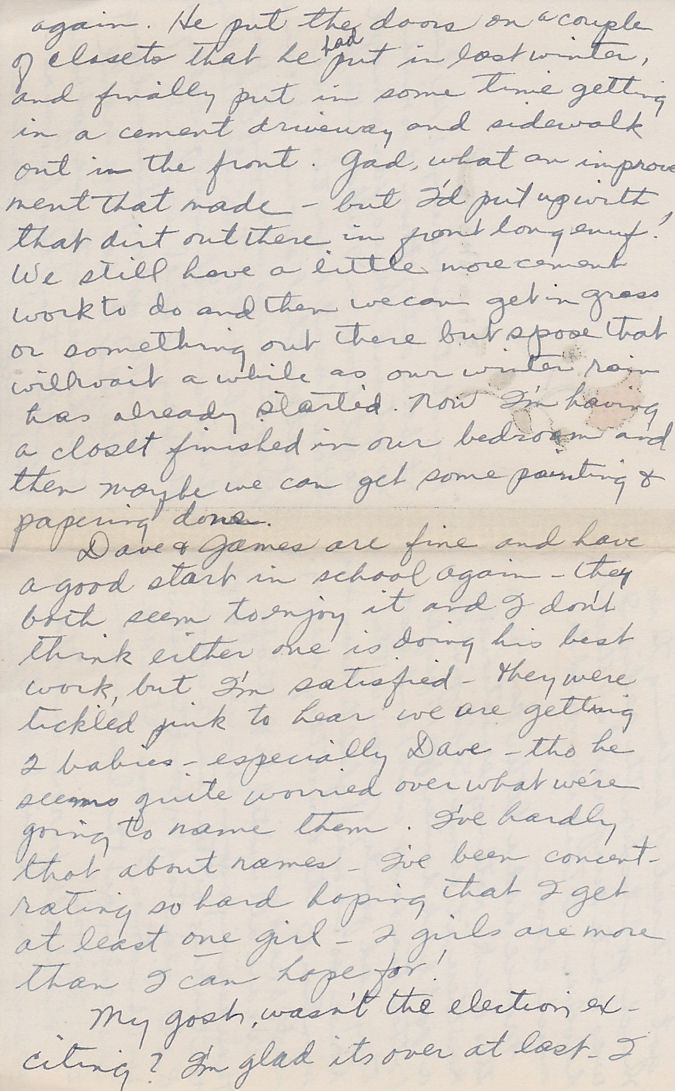 again. He put the doors on a couple
of closets that he had put in last winter,
and finally put in some time getting
in a cement driveway and sidewalk
out in the front. Gad, what an improve
ment that made - but I'd put up with
that dirt out there in front long enuf!
We still have a little more cement
work to do and then we can get in grass
or something out there but spose that
will wait a while as our winter rain
has already started. Now I'm having
a closet finished in our bedroom and
then maybe we can get some painting &
papering done.
Dave & James are fine and have
a good start in school again - they
both seem to enjoy it and I don't
think either one is doing his best
work, but I'm satisfied - they were
tickled pink to hear we are getting
2 babies - especially Dave - tho he
seems quite worried over what we're
going to name them. I've hardly
that about names - I've been concent-
rating so hard hoping that I get
at least one girl - 2 girls are more
than I can hope for!
My gosh, wasn't the election ex-
citing? I'm glad its over at last - I